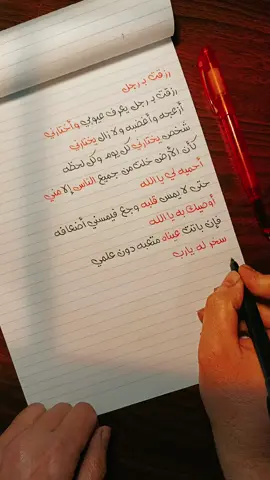 رزقت بـ رجل
رزقت بـ رجل يعرف عيوبي وأختارني
أزعجه وأغضبه ولا زال يختارني
شخص يختارني كل يوم وكل لحظه
كأن الأرض خلت من جميع الناس إلا مني
أحميه لي يا الله
حتى لا يمس قلبه وجع فيمسني أضعافه
أوصيك به يا الله
فإن باتت عيناه متعبه دون علمي
سخر له يارب